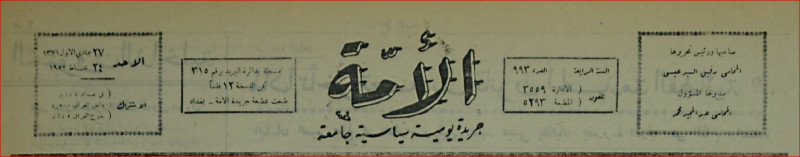 صاحبها ورئيس تحريرها
المحامي رفيق السيد عيسى
مديرها المسؤول
المحامي عبد المجيد محمد
السنة الرابعة العدد ٩٩٣
تلفون
الادارة ٣٥٥٩
المطبعة ٥٢٩٣
الأمة
جريدة يومية سياسية جامعة
مسجلة بدائرة البريد برقم ٣١٥
ثمن النسخة ١٢ فلساً
طبعت بمطبعة جريدة الامة - بغداد
الاحد
٢٧ جمادي الاول ١٣٧١
٢٤ شباط ١٩٥٢
الاشتراك